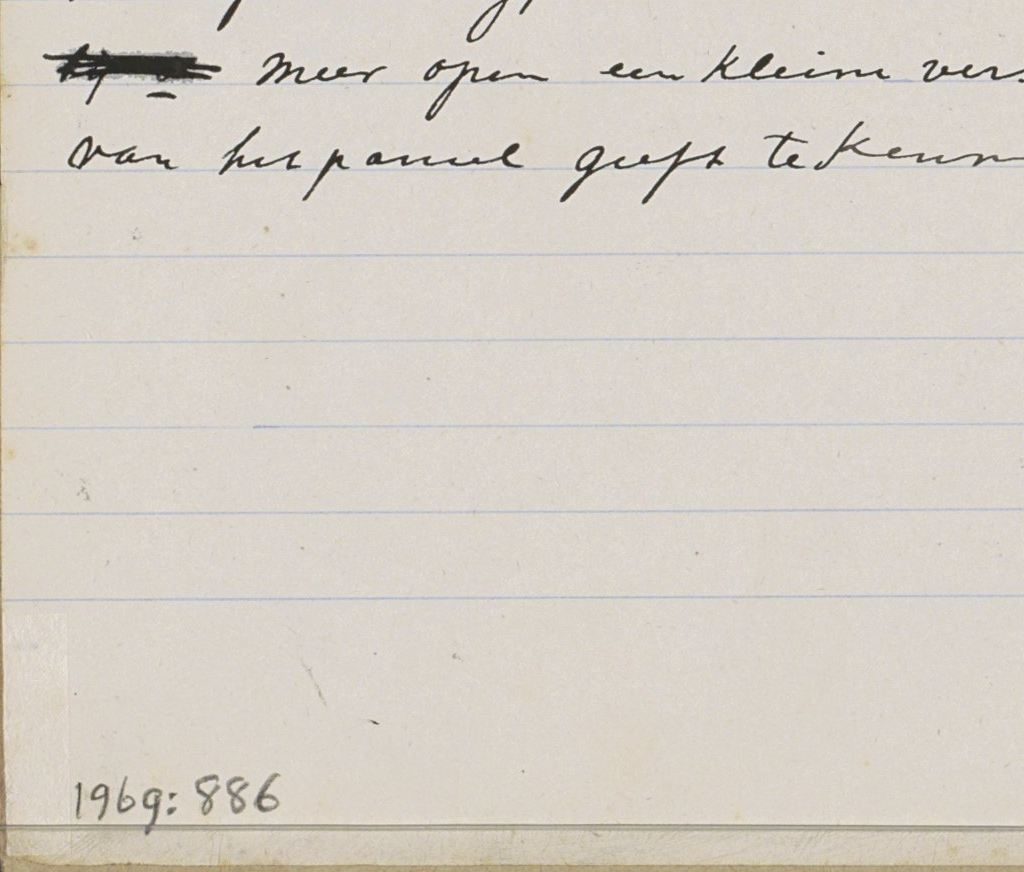 meer open een kleine vers
van het paneel geeft te kenn
1969: 886